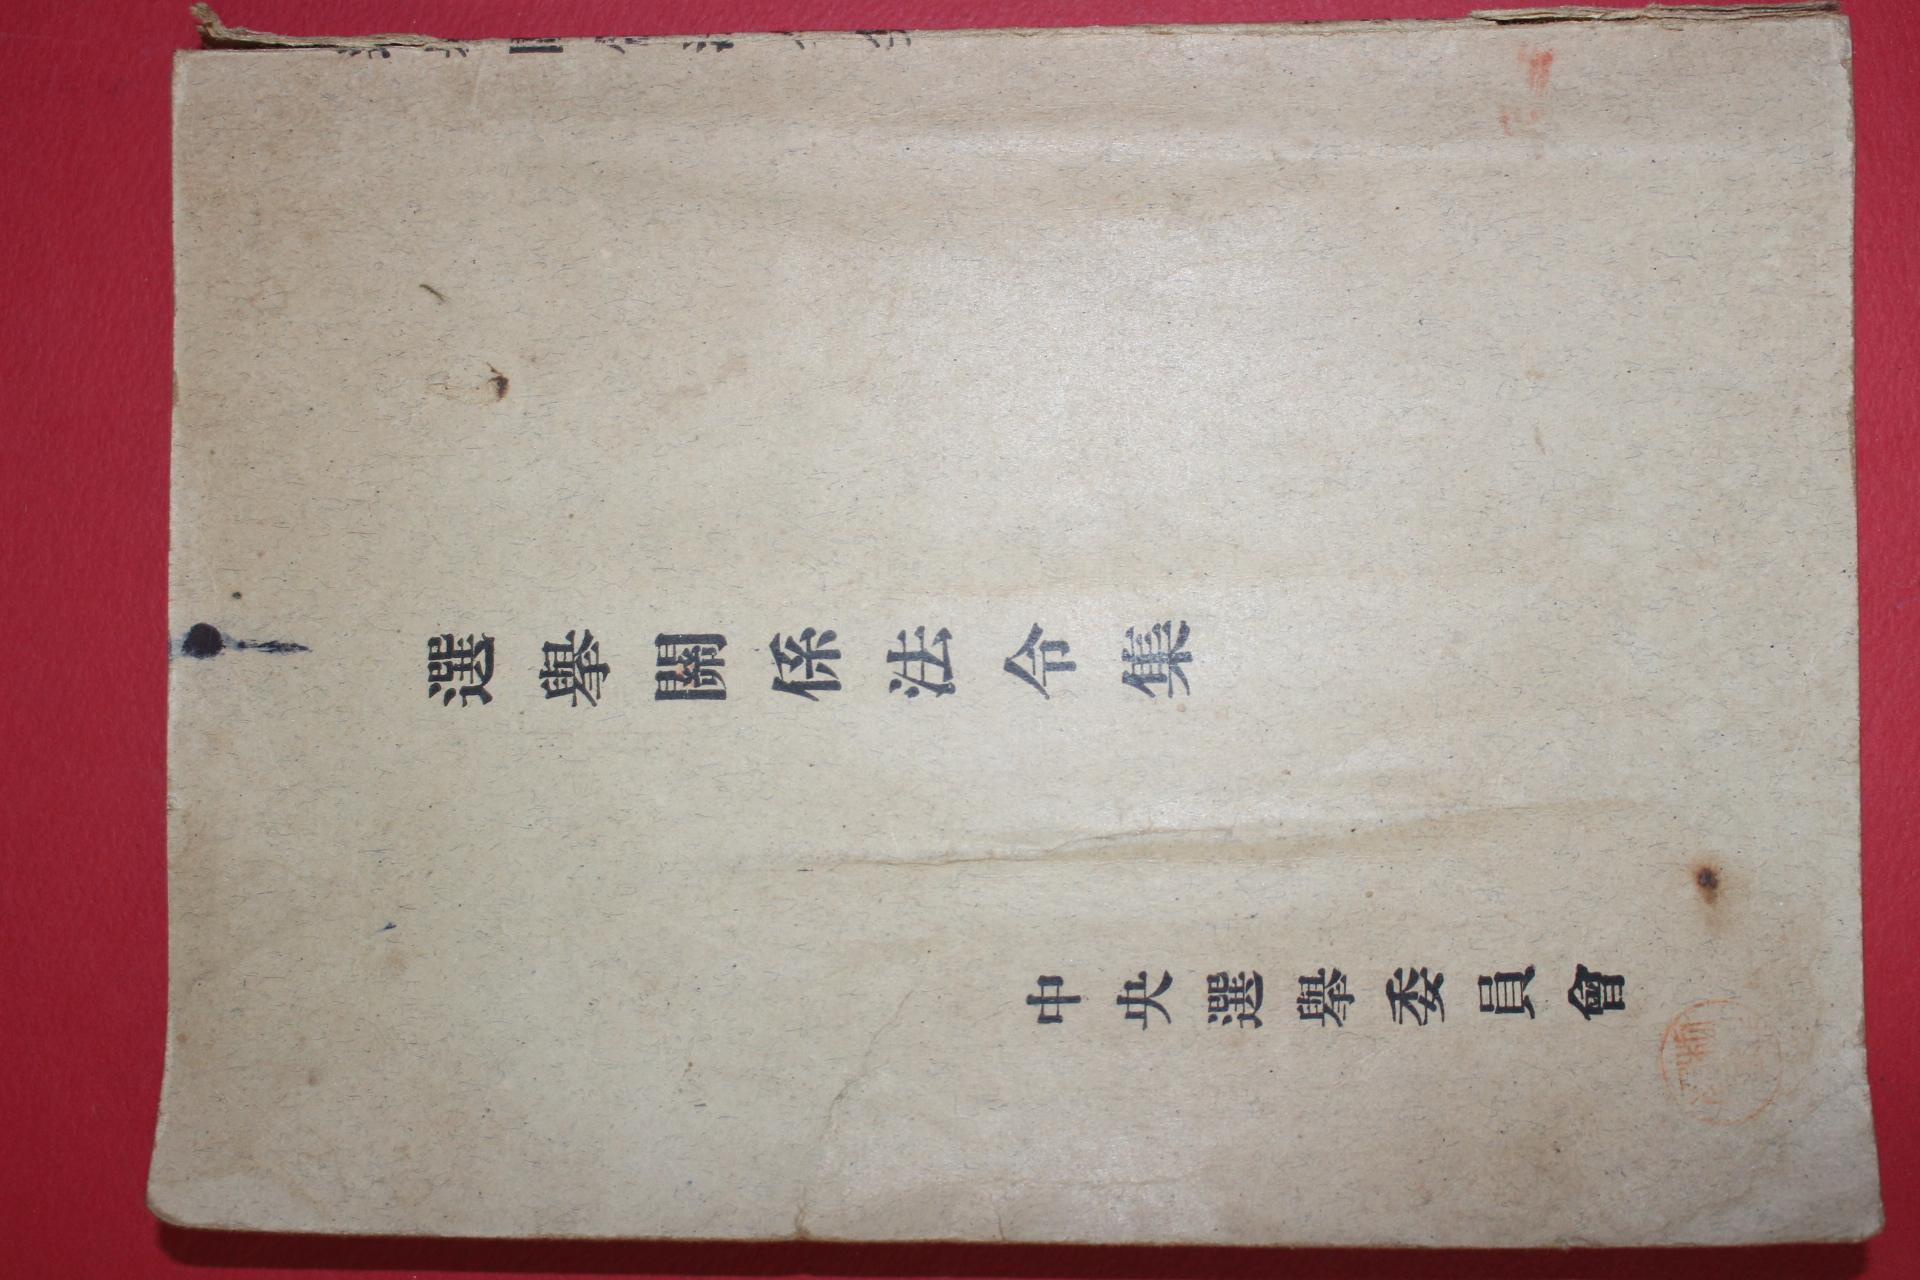 選擧關係法令集
中央選擧委員會